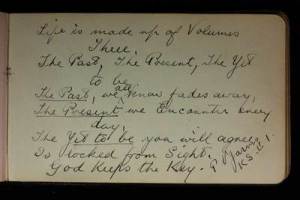 Life is made up of Volumes
Three,
The Past, The Present, The Yet
to be,
The Past, we all know fades away,
The Present we Encounter every
day,
The Yet to be you will agree
Is locked from Sight.
God Keeps the Key.